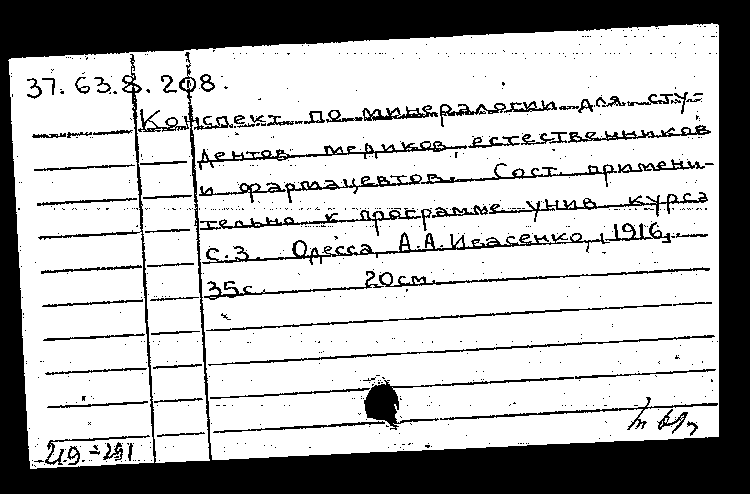 37.63.8.208.
Конспект по минералогии для сту=
дентов медиков, естественников
и фармацевтов. Сост. примени-
тельно к программе унив. курса
С.З. Одесса, А.А.Ивасенко, 1916,.
35с. 20см.